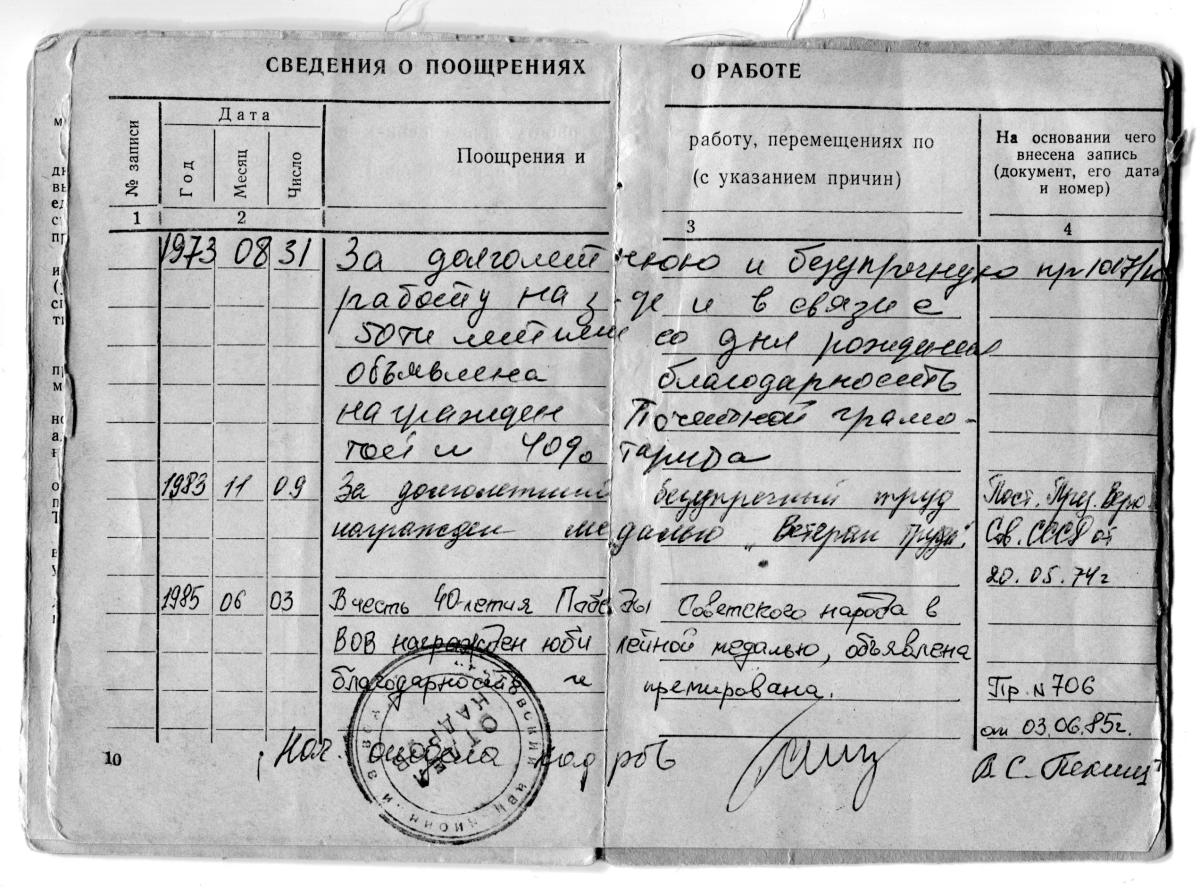 СВЕДЕНИЯ О ПООЩРЕНИЯХ О РАБОТЕ
№ записи
Дата
Год
Месяц
Число
Поощрения и работу, перемещениях по
(с указанием причин)
На основании чего
внесена запись
(документ, его дата
и номер)
1 2 3 4
1973 08 31 За долголетнюю и безупречную пр 1017/к
работу на з-де и в связи с
50ти летием со дня рождения
объявлена благодарность
награжден Почетной грамо-
той и 40% тарифа
1983 11 09 За долголетний безупречный труд Пост. През. Верх.
награжден медалью „Ветеран Труда“. Сов. СССР от
20.05.74г
1985 06 03 В честь 40-летия Победы Советского народа в
ВОВ награжден юбилейной медалью, объявлена
благодарность и премирована. Пр. N 706
от 03.06.85г.
10
Нач. отдела кадров
ОТДЕЛ
КАДРОВ